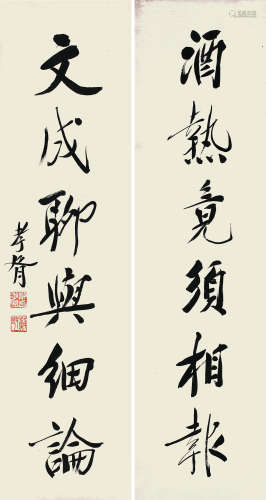 酒熱竟須相報
文成聊與細論
孝胥